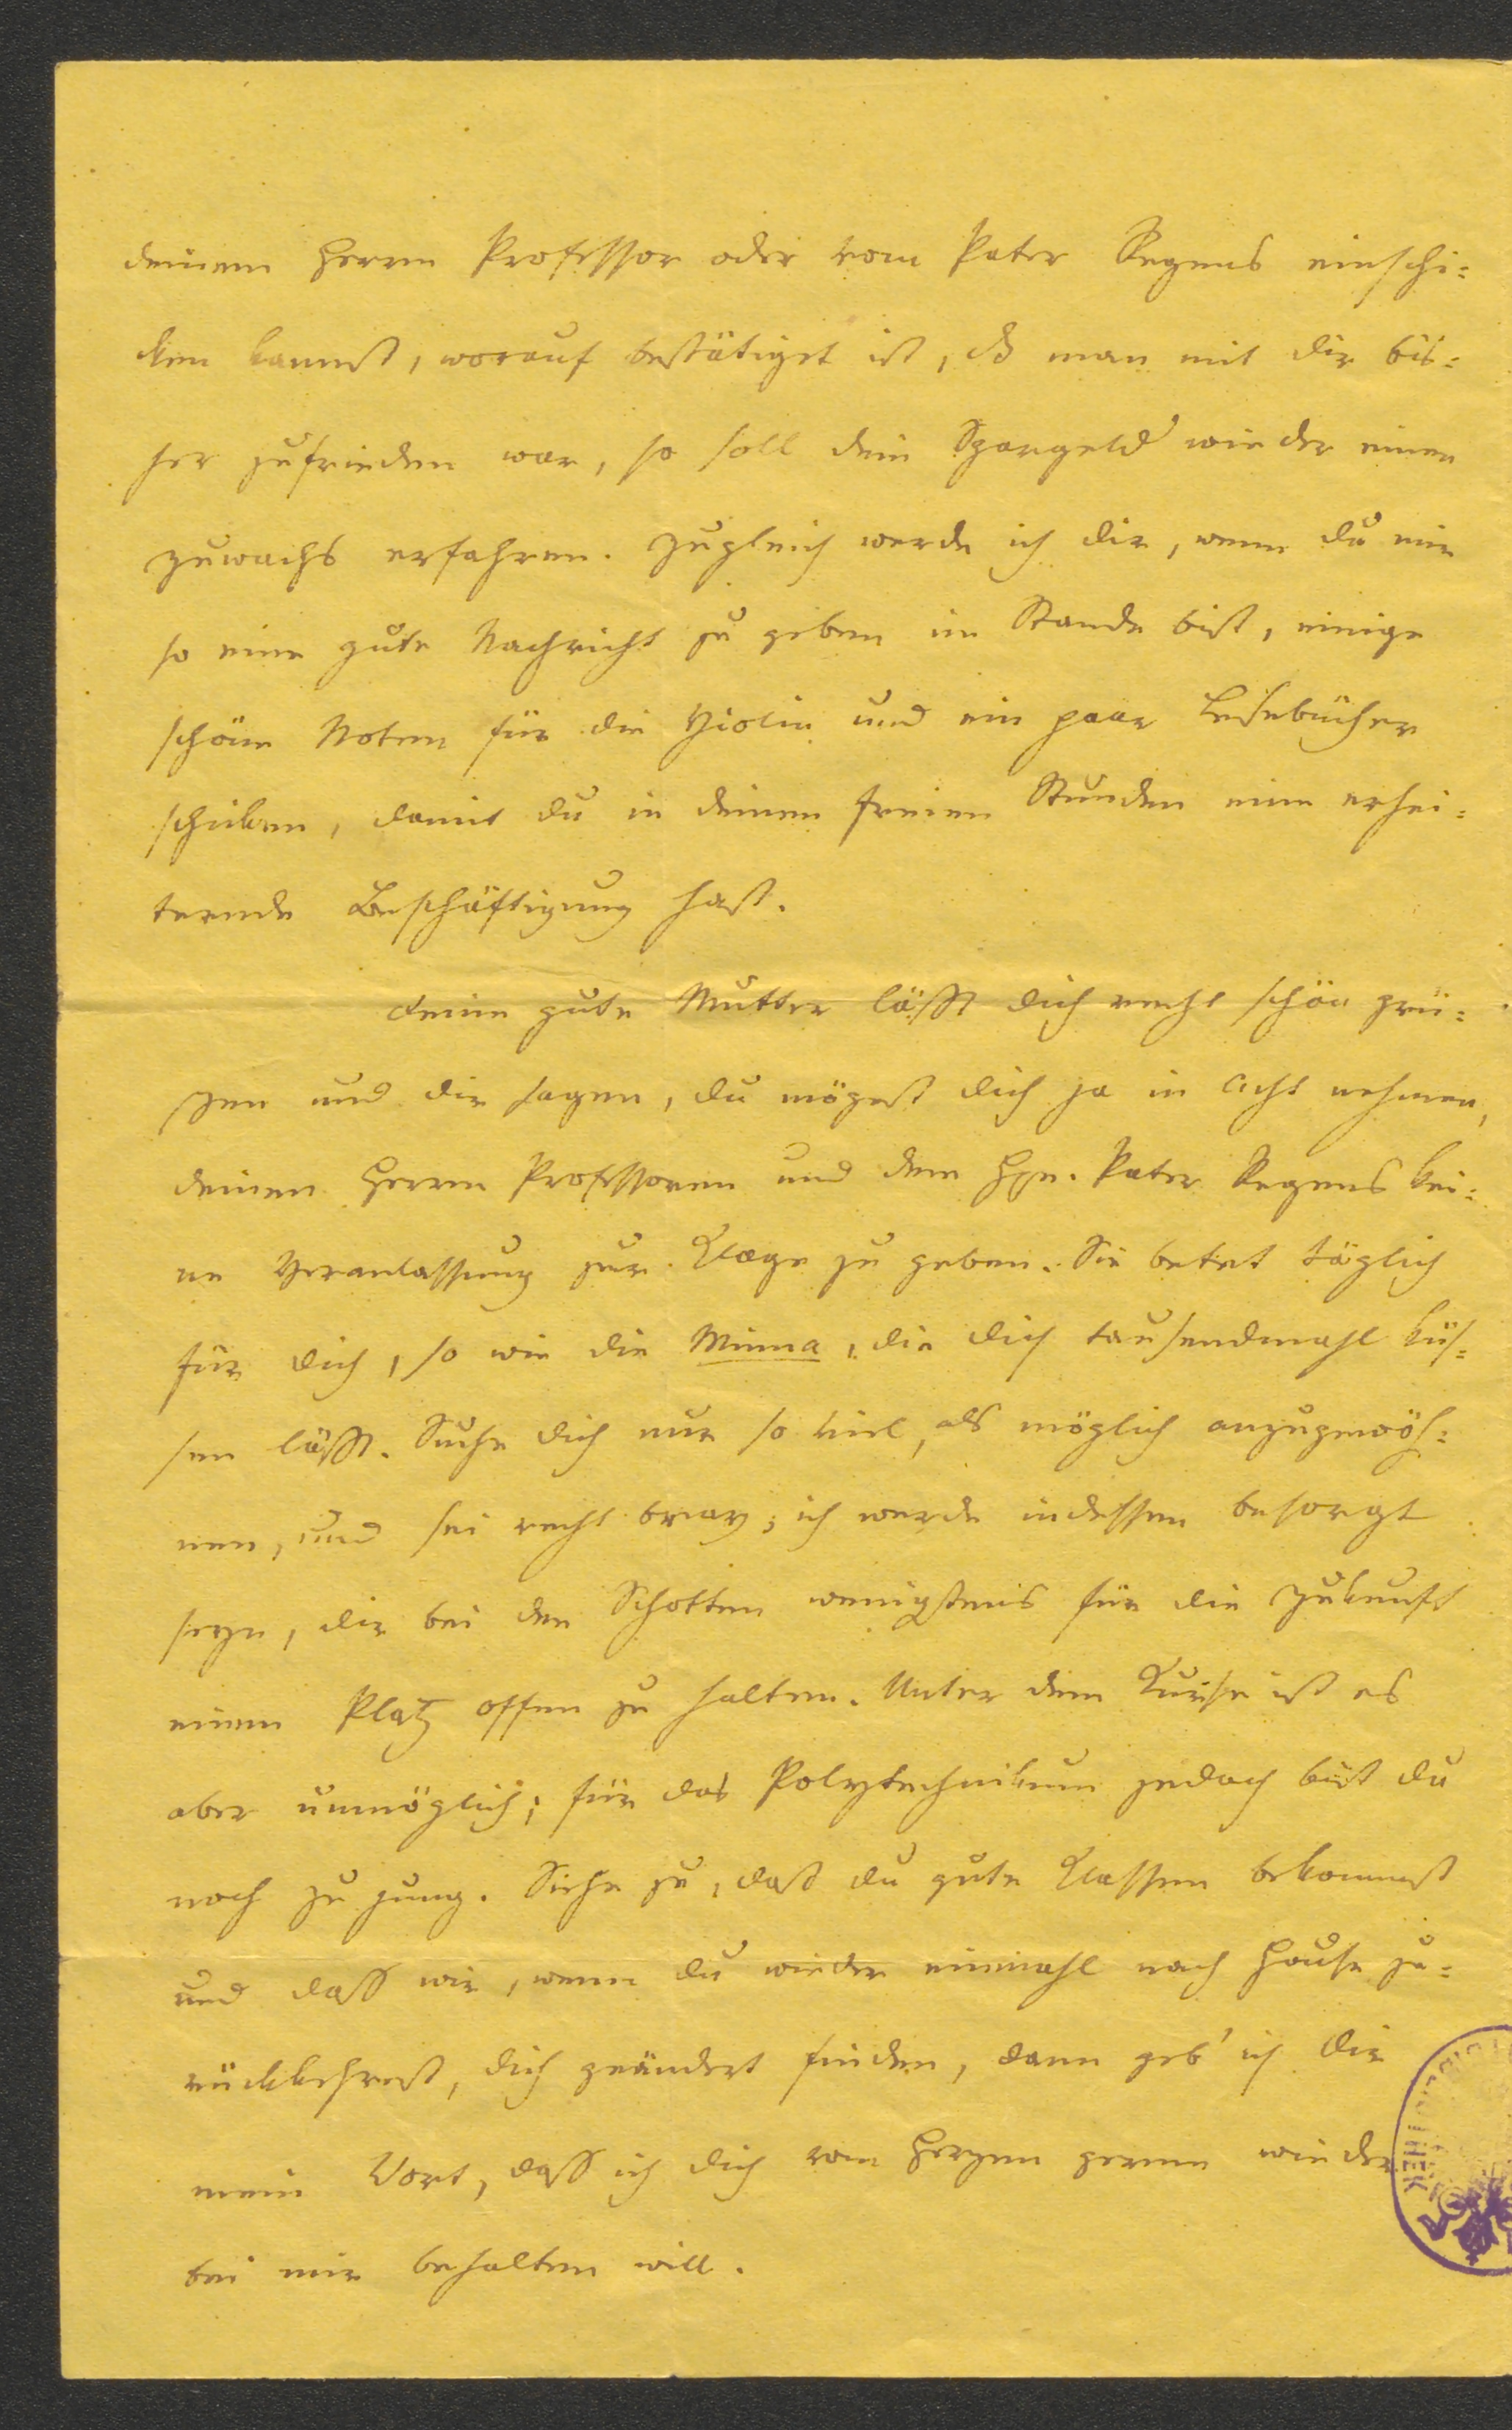 deinem Herrn Professor oder vom Pater Regens einschi=
ken kannst, worauf bestätiget ist, dß man mit dir bis=
her zufrieden war, so soll dein Spargeld wieder einen
Zuwachs erfahren. Zugleich werde ich dir, wenn du mir
so eine gute Nachricht zu geben im Stande bist, einige
schöne Noten für die Violin und ein paar Lesebücher
schicken, damit du in deinen freien Stunden eine erhei=
ternde Beschäftigung hast.
deine gute Mutter läßt dich recht schön grü=
ßen und dir sagen, du mögest dich ja in Acht nehmen,
deinen Herrn Professoren und dem Hrn. Pater Regens kei=
ne Veranlassung zur Klage zu geben. Sie betet täglich
für dich, so wie die Minna, die dich tausendmahl küs=
sen läßt. Suche dich nur so viel, als möglich anzugewöh=
nen, und sei recht brav; ich werde indessen besorgt
seyn, dir bei den Schotten wenigstens für die Zukunft
einen Platz offen zu halten. Unter dem Kurse ist es
aber unmöglich; für das Polytechnikum jedoch bist du
noch zu jung. Siehe zu, daß du gute Klassen bekommst
und daß wir, wenn du wieder einmahl nach Hause zu=
rückkehrest, dich geändert finden, dann geb' ich dir
mein Wort, daß ich dich vom Herzen gerne wieder
bei mir behalten will.